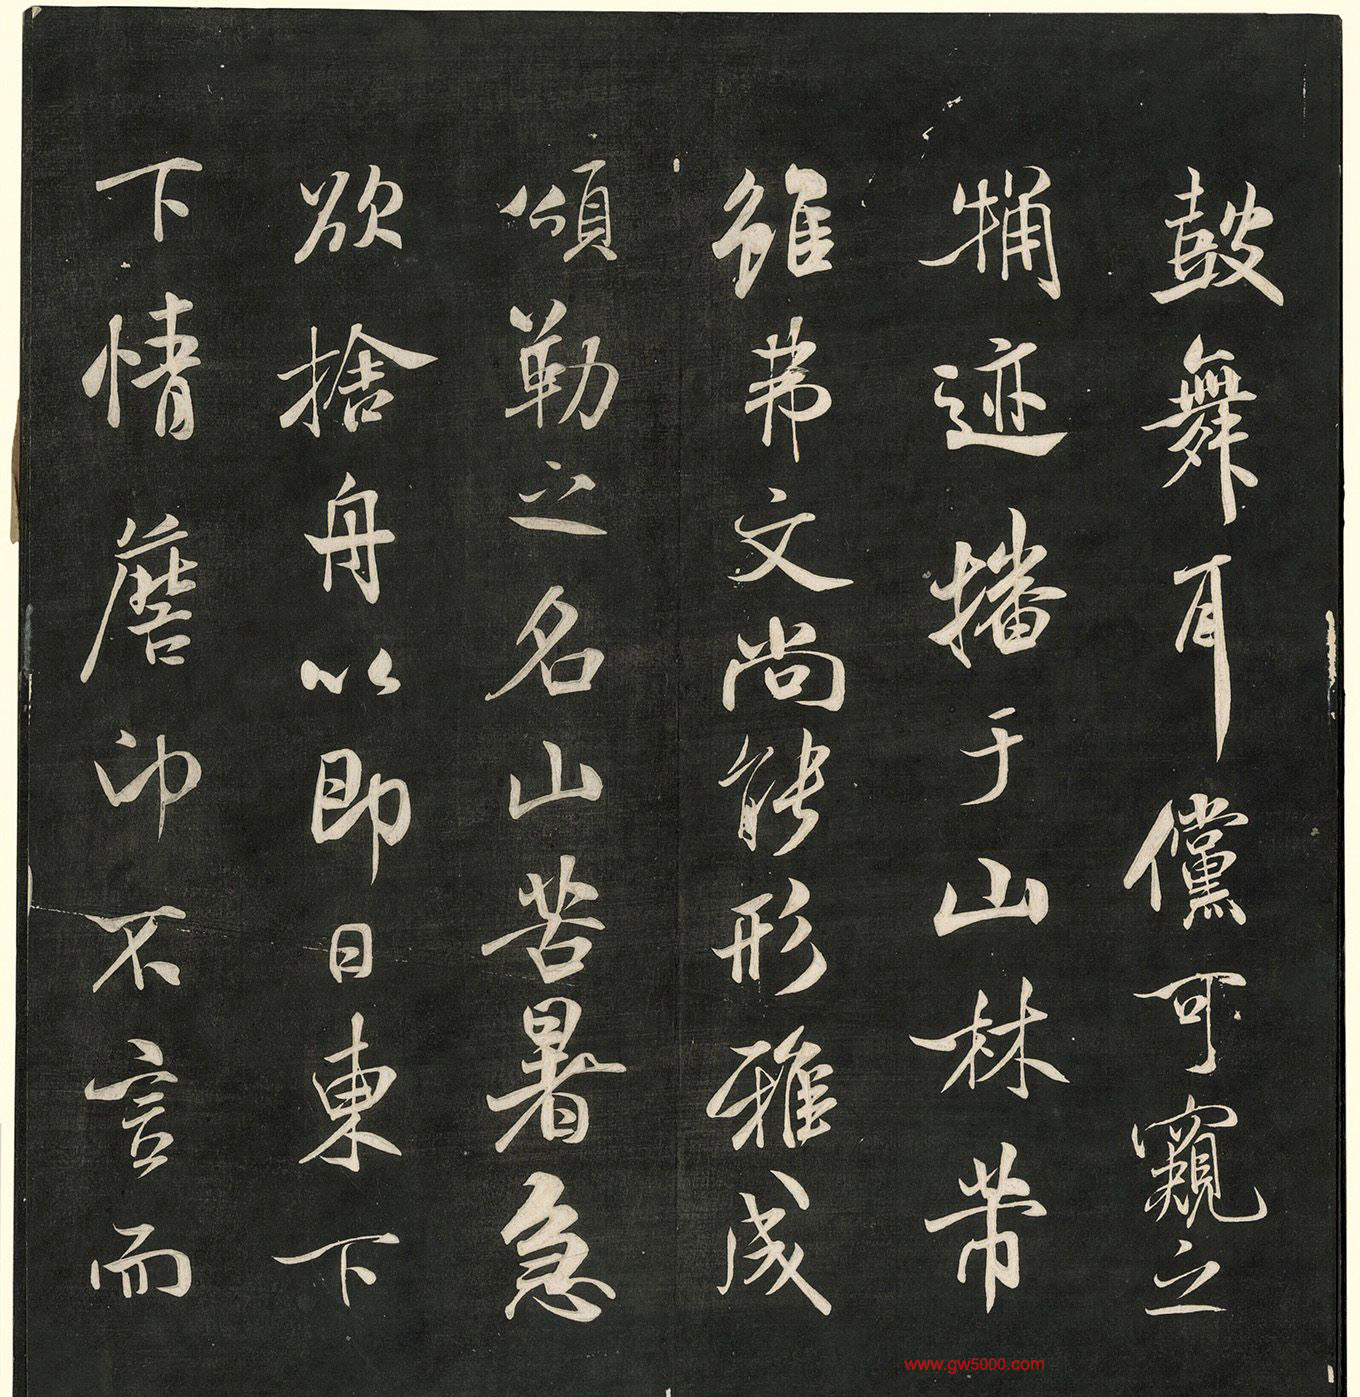 鼓舞耳儻可窺之
捅迹播于山林芾
雖弗文尚能形雅成
頌勒之名山苦暑急
欲捨舟以即日東下
下情蘑仰不言而
www.gw5000.com